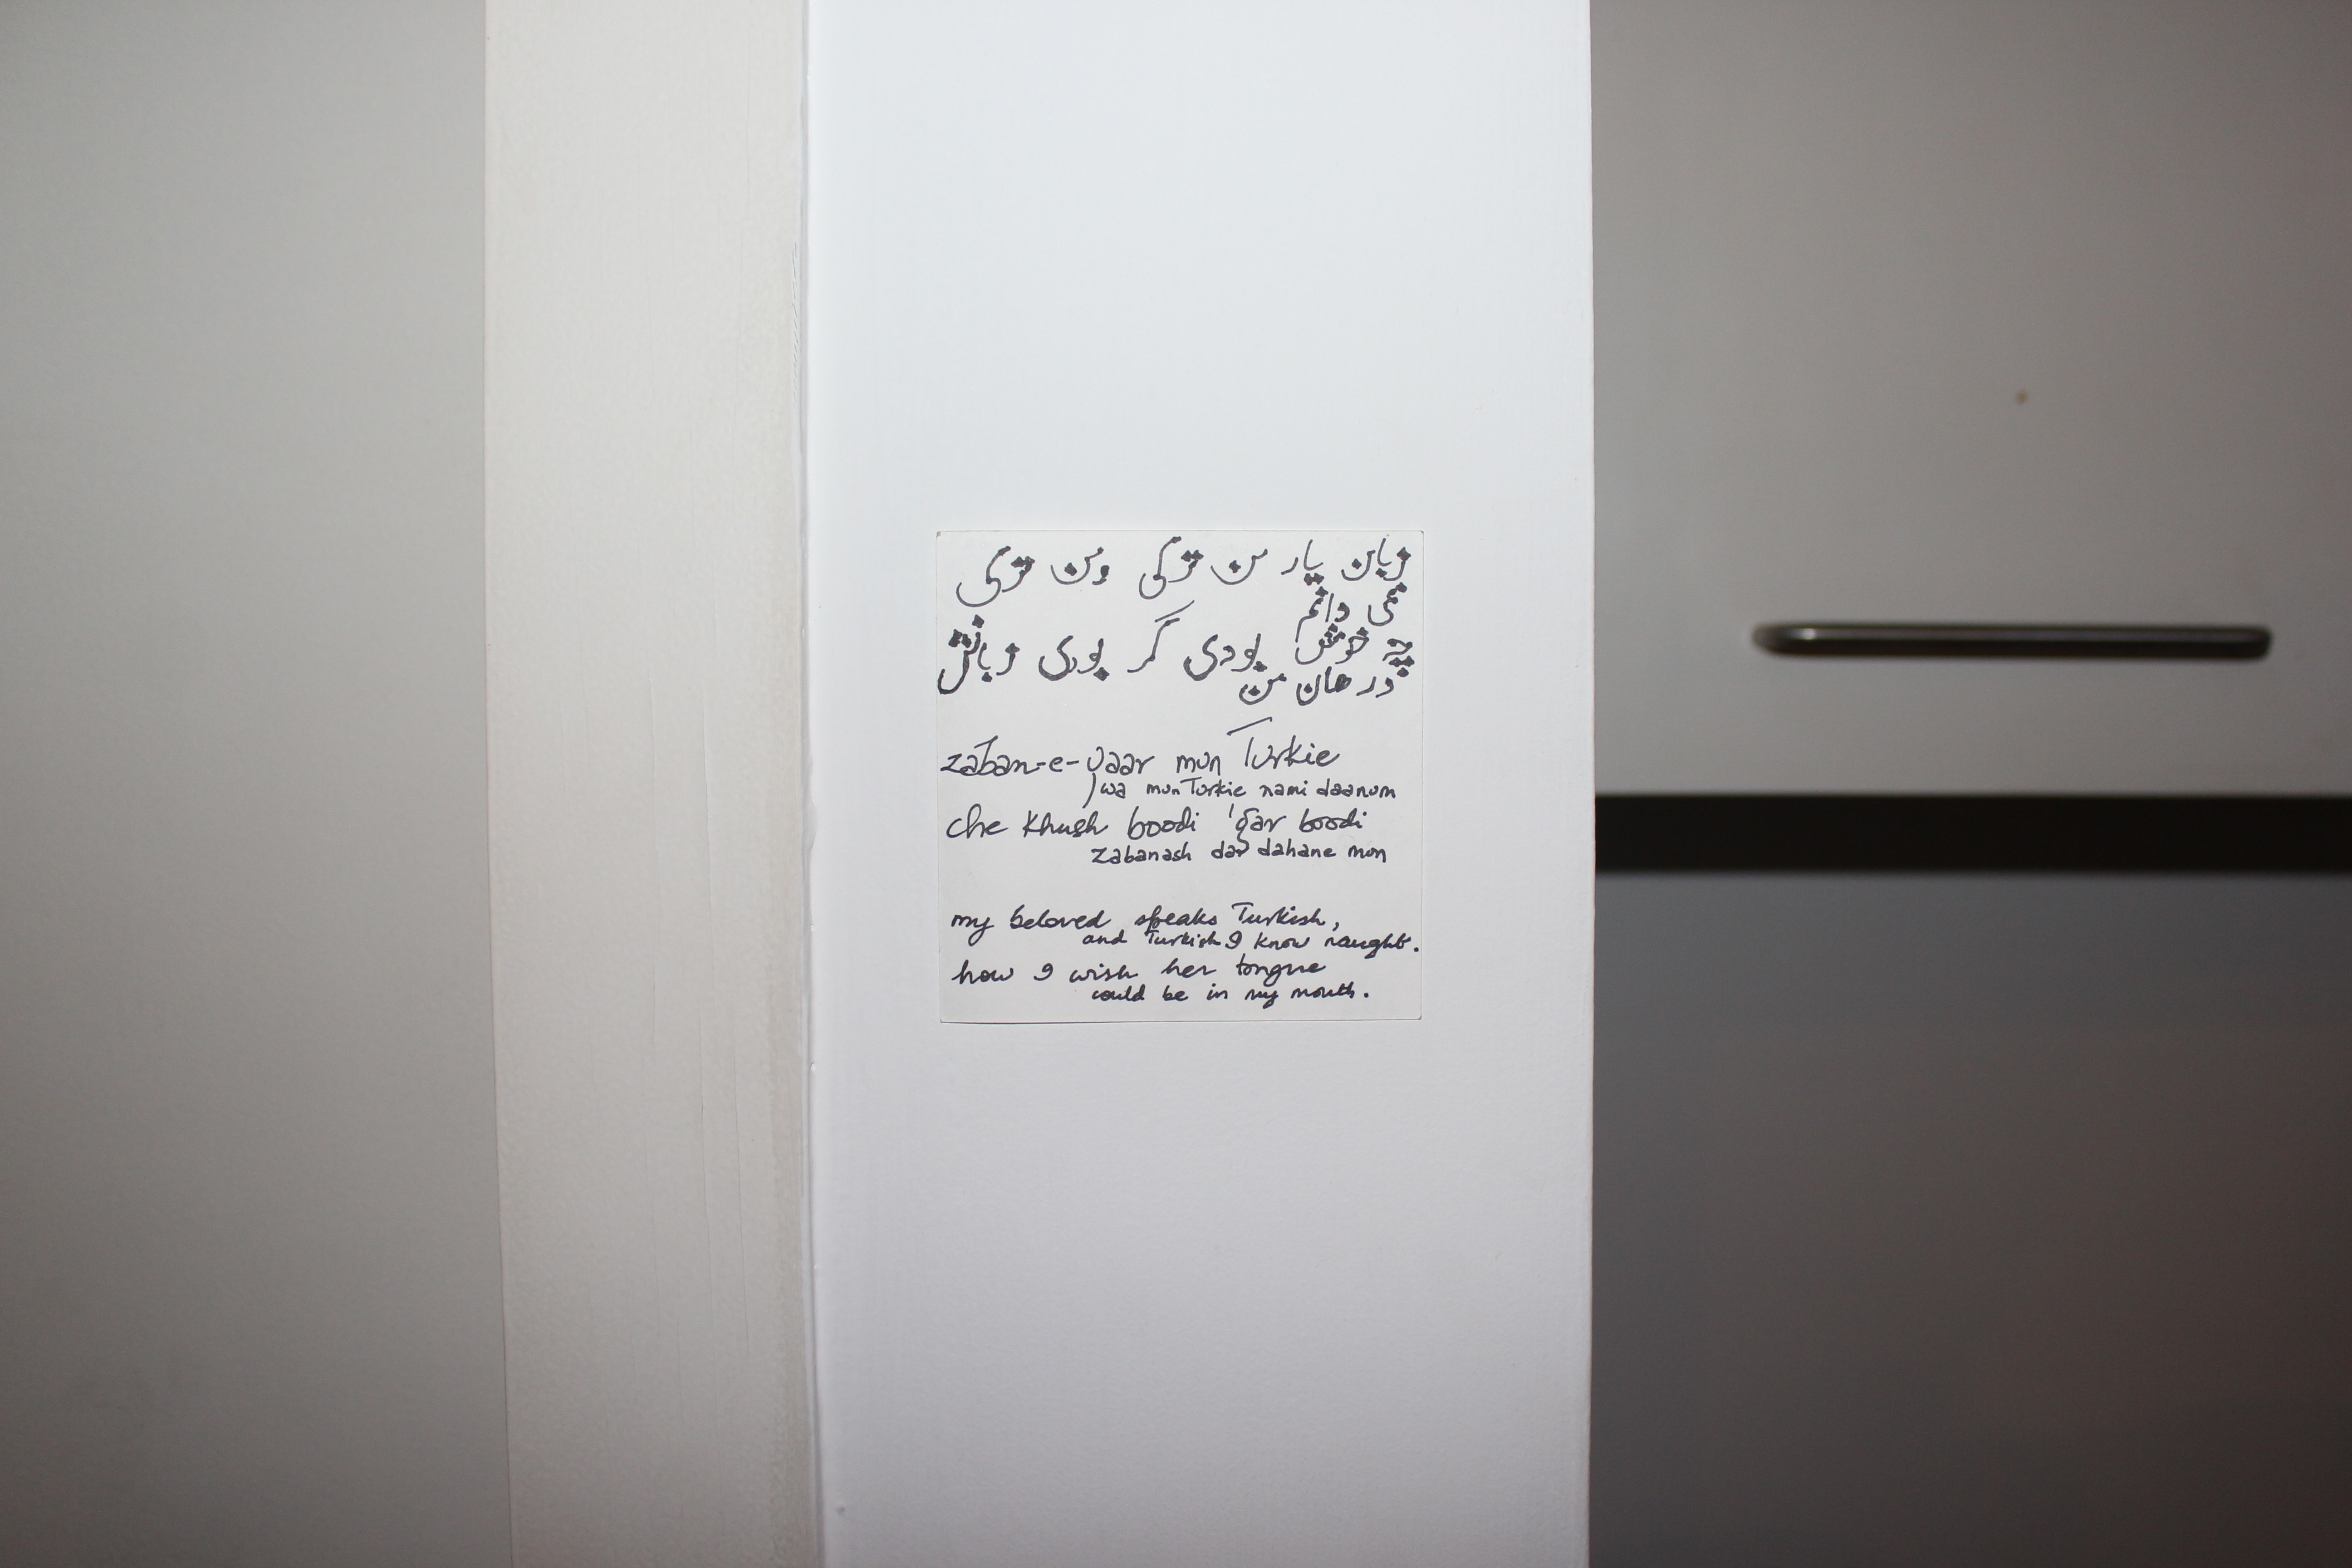 زبان یار من ترکی ومن ترکی
نمی دانم
چه خوش بودی گر بودی زبانش
در هان من
zaban-e-yaar mun Turkie
wa mun Turkie nami daanum
che khush boodi 'gar boodi
zabanash dar dahane mun
my beloved speaks Turkish,
and Turkish I know naught.
how I wish her tongue
could be in my mouth.